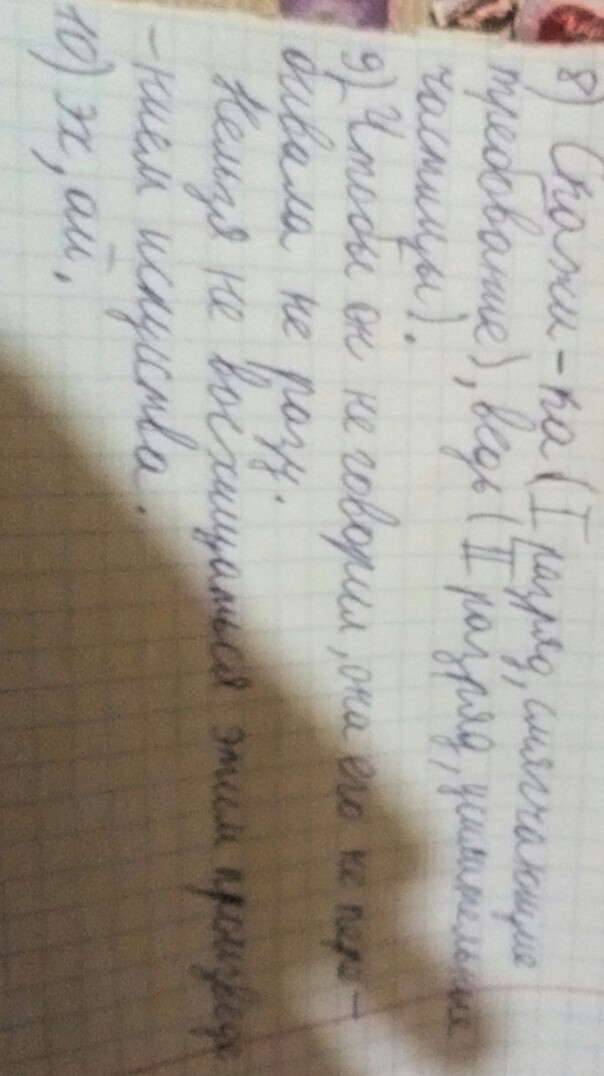 8) Скажи-ка (I разряд, смягчающие
требование), ведь (II разряд, усилительные
частицы).
9) Чтобы он не говорил, она его не пере-
бивала не разу.
Нельзя не восхищаться этим произведе
-нием искуства.
10) эх, ай.